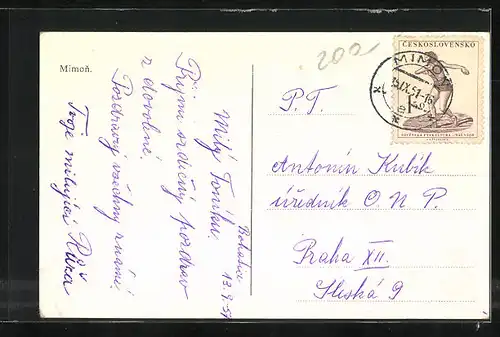 Mimoň.
Bohatice
13.9.51
Milý Toníku.
Přijmi srdečný pozdrav
z dovolené.
Pozdravuj všechny známé!
Tvoje milující Růža
202
ČESKOSLOVENSKO
MIMOŇ
IX.51-16
P. T.
Antonín Kubík
úředník O. N. P.
Praha XII.
Slezská 9